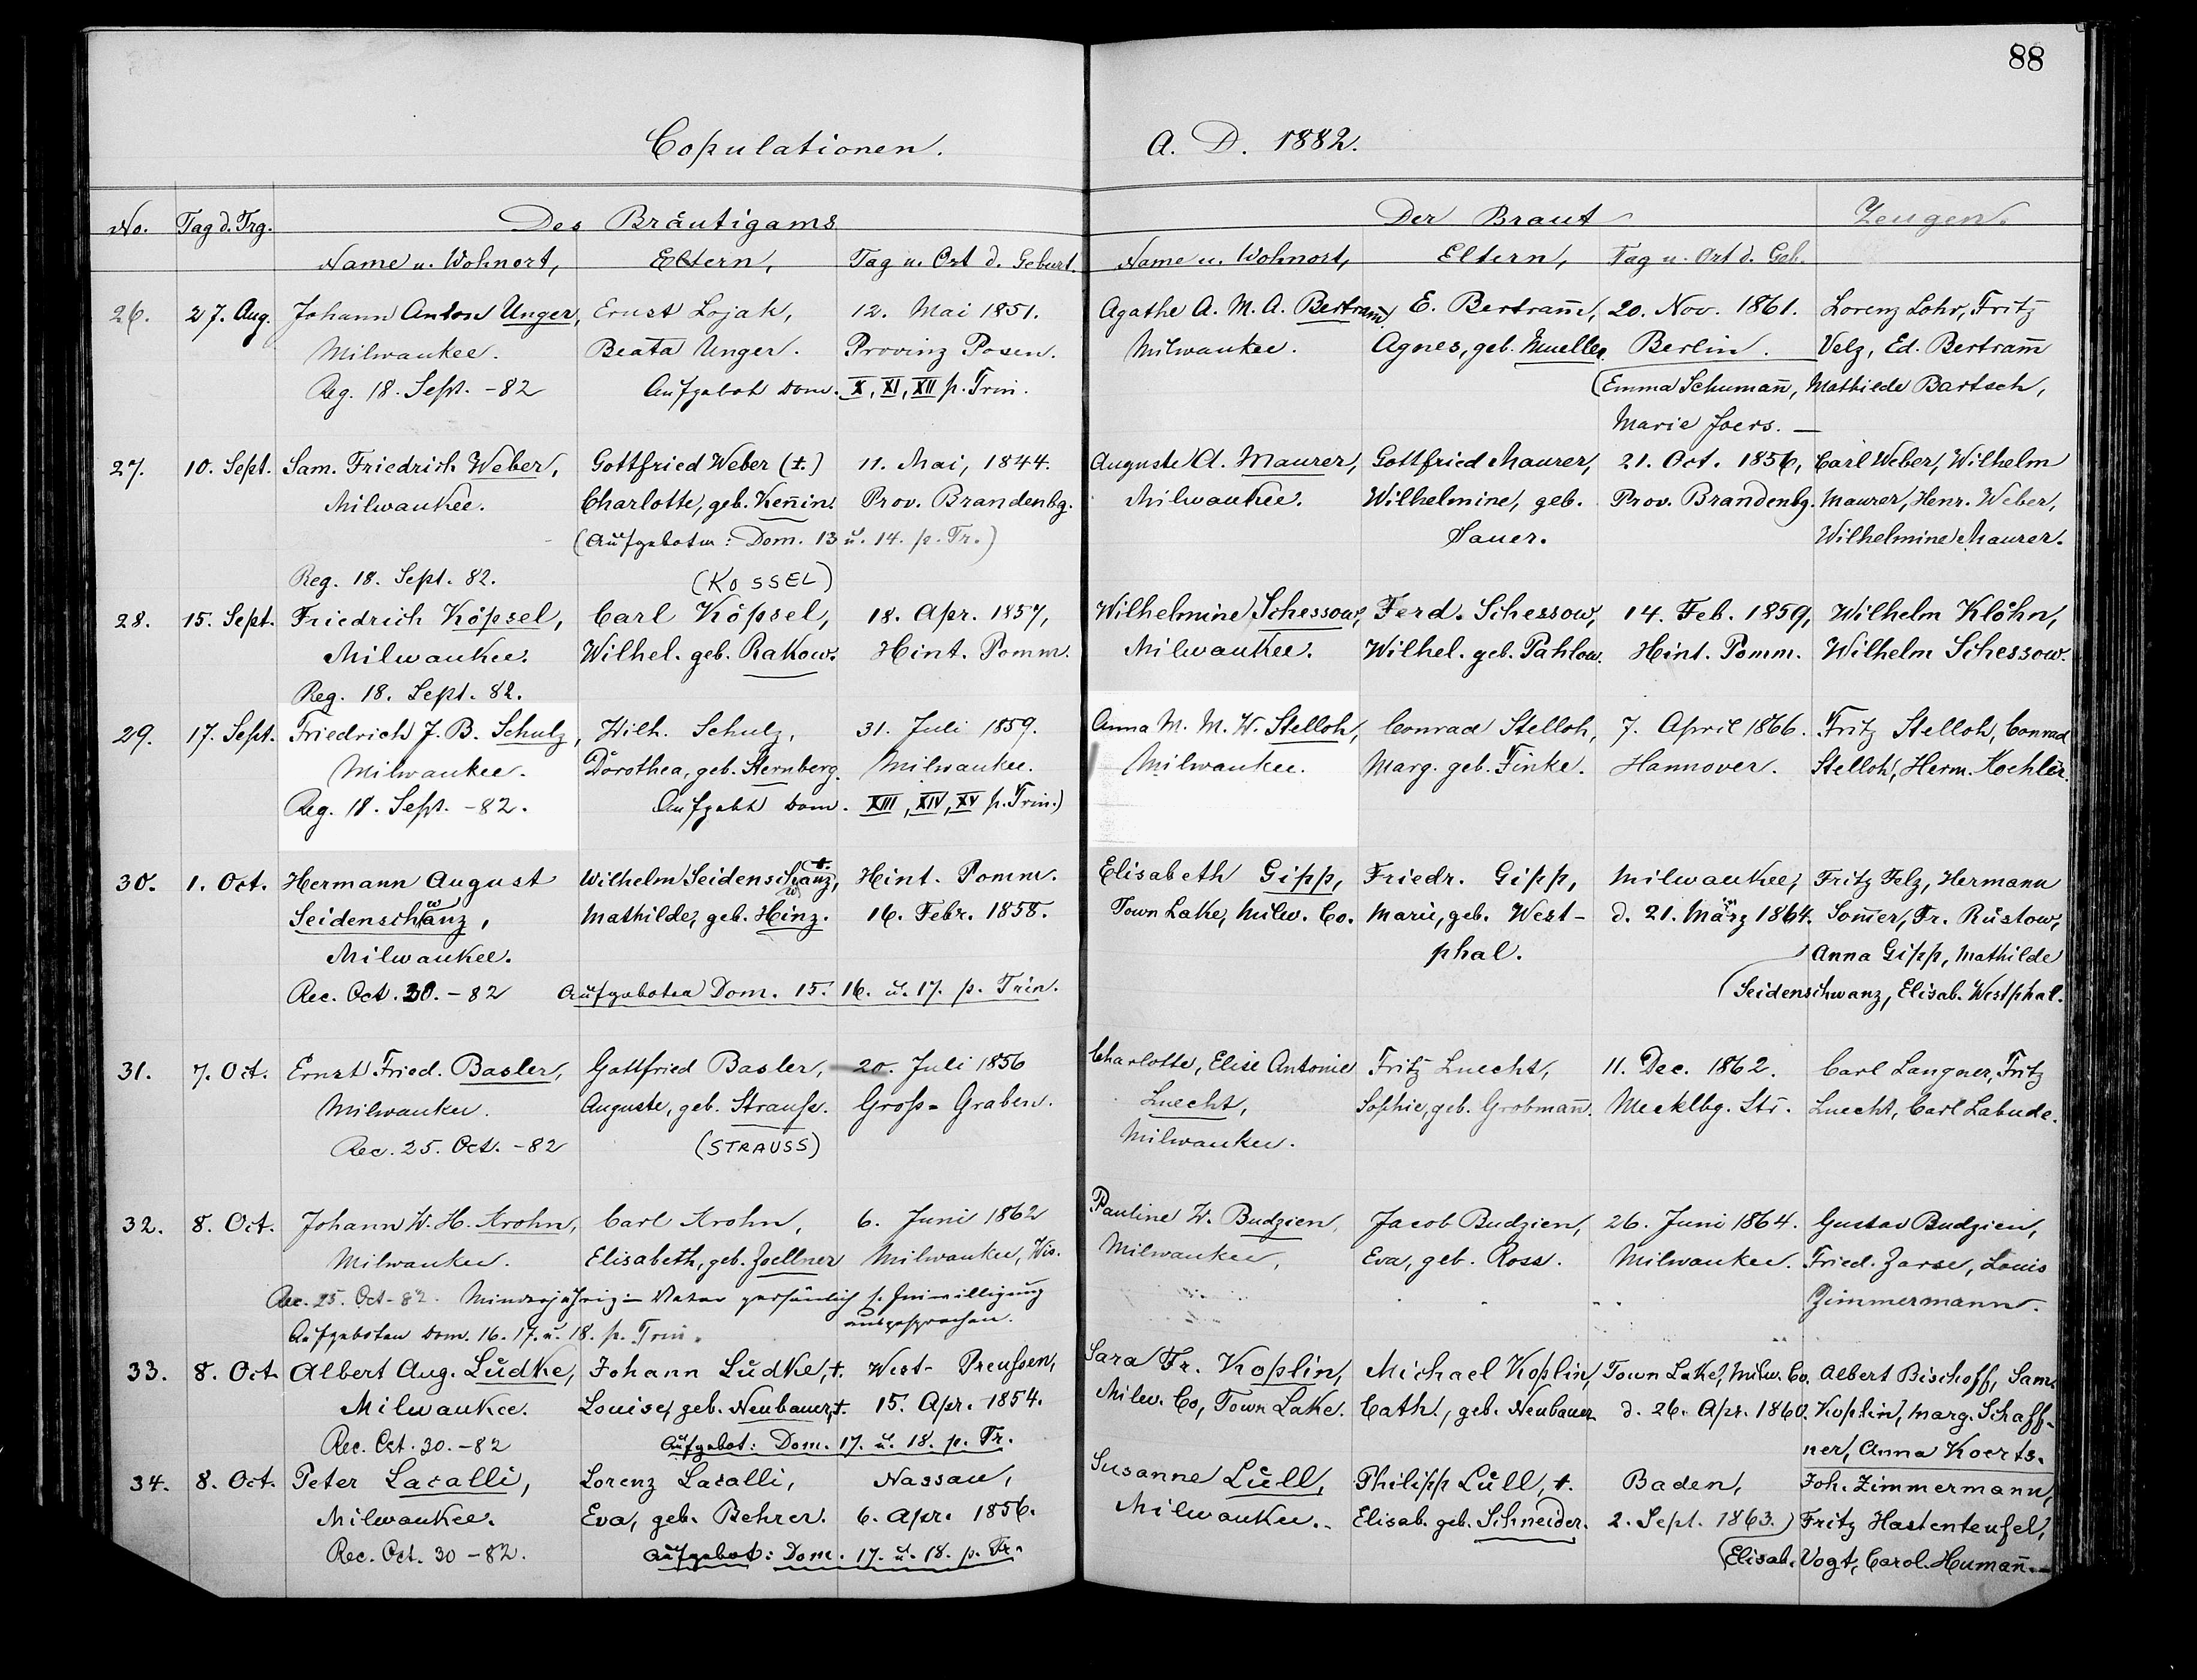 88
Copulationen. A. D. 1882.
No. Tag d. Trg. Des Bräutigams Der Braut Zeugen.
Name u. Wohnort, Eltern, Tag u. Ort d. Geburt. Name u. Wohnort, Eltern, Tag u. Ort d. Geb.
26. 27. Aug. Johann Anton Unger, Ernst Lojak, 12. Mai 1851. Agathe A. M. A. Bertram̄, E. Bertram̄, 20. Nov. 1861. Lorenz Lohr, Fritz
Milwaukee. Beata Unger. Provinz Posen. Milwaukee. Agnes, geb. Mueller. Berlin. Velz, Ed. Bertram̄
Reg. 18. Sept. -82 Aufgebot Dom. X, XI, XII p. Trin. (Emma Schuman̄, Mathilde Bartsch,
Marie Joers. —
27. 10. Sept. Sam. Friedrich Weber, Gottfried Weber (†.) 11. Mai, 1844. Auguste A. Maurer, Gottfried Maurer, 21. Oct. 1856, Carl Weber, Wilhelm
Milwaukee. Charlotte, geb. Ken̄in. Prov. Brandenbg. Milwaukee. Wilhelmine, geb. Prov. Brandenbg. Maurer, Henr. Weber,
(Aufgeboten: Dom. 13 u. 14. p. Tr.) Sauer. Wilhelmine Maurer.
Reg. 18. Sept. 82. (KOSSEL)
28. 15. Sept. Friedrich Köpsel, Carl Köpsel, 18. Apr. 1857, Wilhelmine Schessow, Ferd. Schessow, 14. Feb. 1859, Wilhelm Klöhn,
Milwaukee. Wilhel. geb. Rakow. Hint. Pomm. Milwaukee. Wilhel. geb. Pahlow. Hint. Pomm. Wilhelm Schessow.
Reg. 18. Sept. 82.
29. 17. Sept. Friedrich J. B. Schulz, Wilh. Schulz, 31. Juli 1859. Anna M. M. W. Stelloh, Conrad Stelloh, 7. April 1866. Fritz Stelloh, Conrad
Milwaukee. Dorothea, geb. Sternberg. Milwaukee. Milwaukee. Marg. geb. Finke. Hannover. Stelloh, Herm. Kochler.
Reg. 18. Sept. -82. Dom. XIII, XIV, XV p. Trin.)
30. 1. Oct. Hermann August Wilhelm Seidenschwanz, †. Hint. Pomm. Elisabeth Gipp, Friedr. Gipp, Milwaukee, Fritz Felz, Hermann
Seidenschwanz, Mathilde, geb. Hinz. 16. Febr. 1858. Town Lake, Milw. Co. Marie, geb. West- d. 21. März 1864. Som̄er, Fr. Rüstow,
Milwaukee. phal. Anna Gipp, Mathilde
Rec. Oct. 30. -82 Aufgeboten Dom. 15. 16. u. 17. p. Trin. (Seidenschwanz, Elisab. Westphal.
31. 7. Oct. Ernst Fried. Basler, Gottfried Basler, 20. Juli 1856 Charlotte, Elise Antonie Fritz Luecht, 11. Dec. 1862. Carl Langner, Fritz
Milwaukee. Auguste, geb. Strauß. Groß-Graben. Luecht, Sophie, geb. Grobman̄. Mecklbg. Str. Luecht, Carl Labude.
Rec. 25. Oct. -82 (STRAUSS) Milwaukee.
32. 8. Oct. Johann W. H. Krohn, Carl Krohn, 6. Juni 1862 Pauline W. Budzien, Jacob Budzien, 26. Juni 1864. Gustav Budzien,
Milwaukee. Elisabeth, geb. Zoellner Milwaukee, Wis. Milwaukee, Eva, geb. Ross. Milwaukee. Fried. Zarse, Louis
Rec. 25. Oct-82. Minderjährig – Vater persönlich s. Einwilligung Zimmermann.
ausgesprochen.
Aufgeboten Dom. 16. 17. u. 18. p. Trin.
33. 8. Oct. Albert Aug. Lüdke, Johann Lüdke, †. West-Preußen, Sara Fr. Koplin, Michael Koplin, Town Lake, Milw. Co. Albert Bischoff, Sam.
Milwaukee. Louise, geb. Neubauer, †. 15. Apr. 1854. Milw. Co, Town Lake. Cath., geb. Neubauer d. 26. Apr. 1860. Koplin, Marg. Schaff-
Rec. Oct. 30. -82 Aufgebot: Dom. 17. u. 18. p. Tr. ner, Anna Koerts.
34. 8. Oct. Peter Lacalli, Lorenz Lacalli, Nassau, Susanne Lüll, Philipp Lüll, †. Baden, Joh. Zimmermann,
Milwaukee. Eva, geb. Behrer. 6. Apr. 1856. Milwaukee. Elisab. geb. Schneider. 2. Sept. 1863.) Fritz Hastenteufel,
Rec. Oct. 30 -82. Aufgebot: Dom. 17. u. 18. p. Tr. (Elisab. Vogt, Carol. Human̄.—